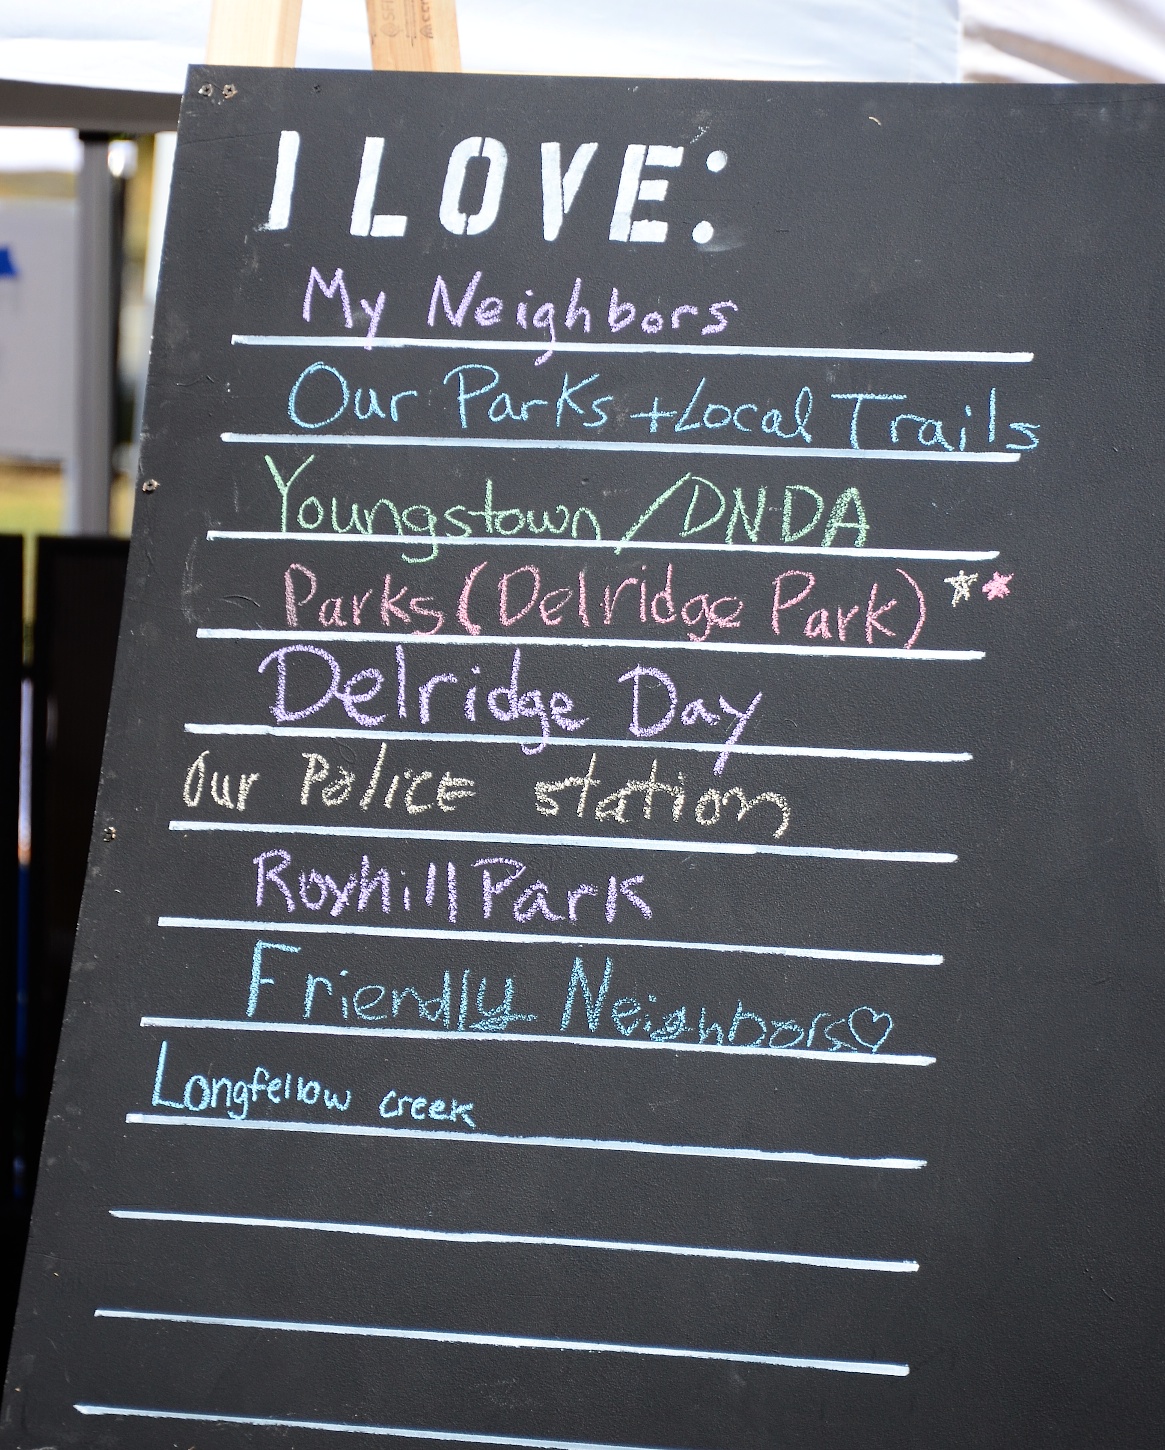 I LOVE:
My Neighbors
Our Parks + Local Trails
Youngstown / DNDA
Parks (Delridge Park)
Delridge Day
Our Police station
Roxhill Park
Friendly Neighbors♡
Longfellow creek